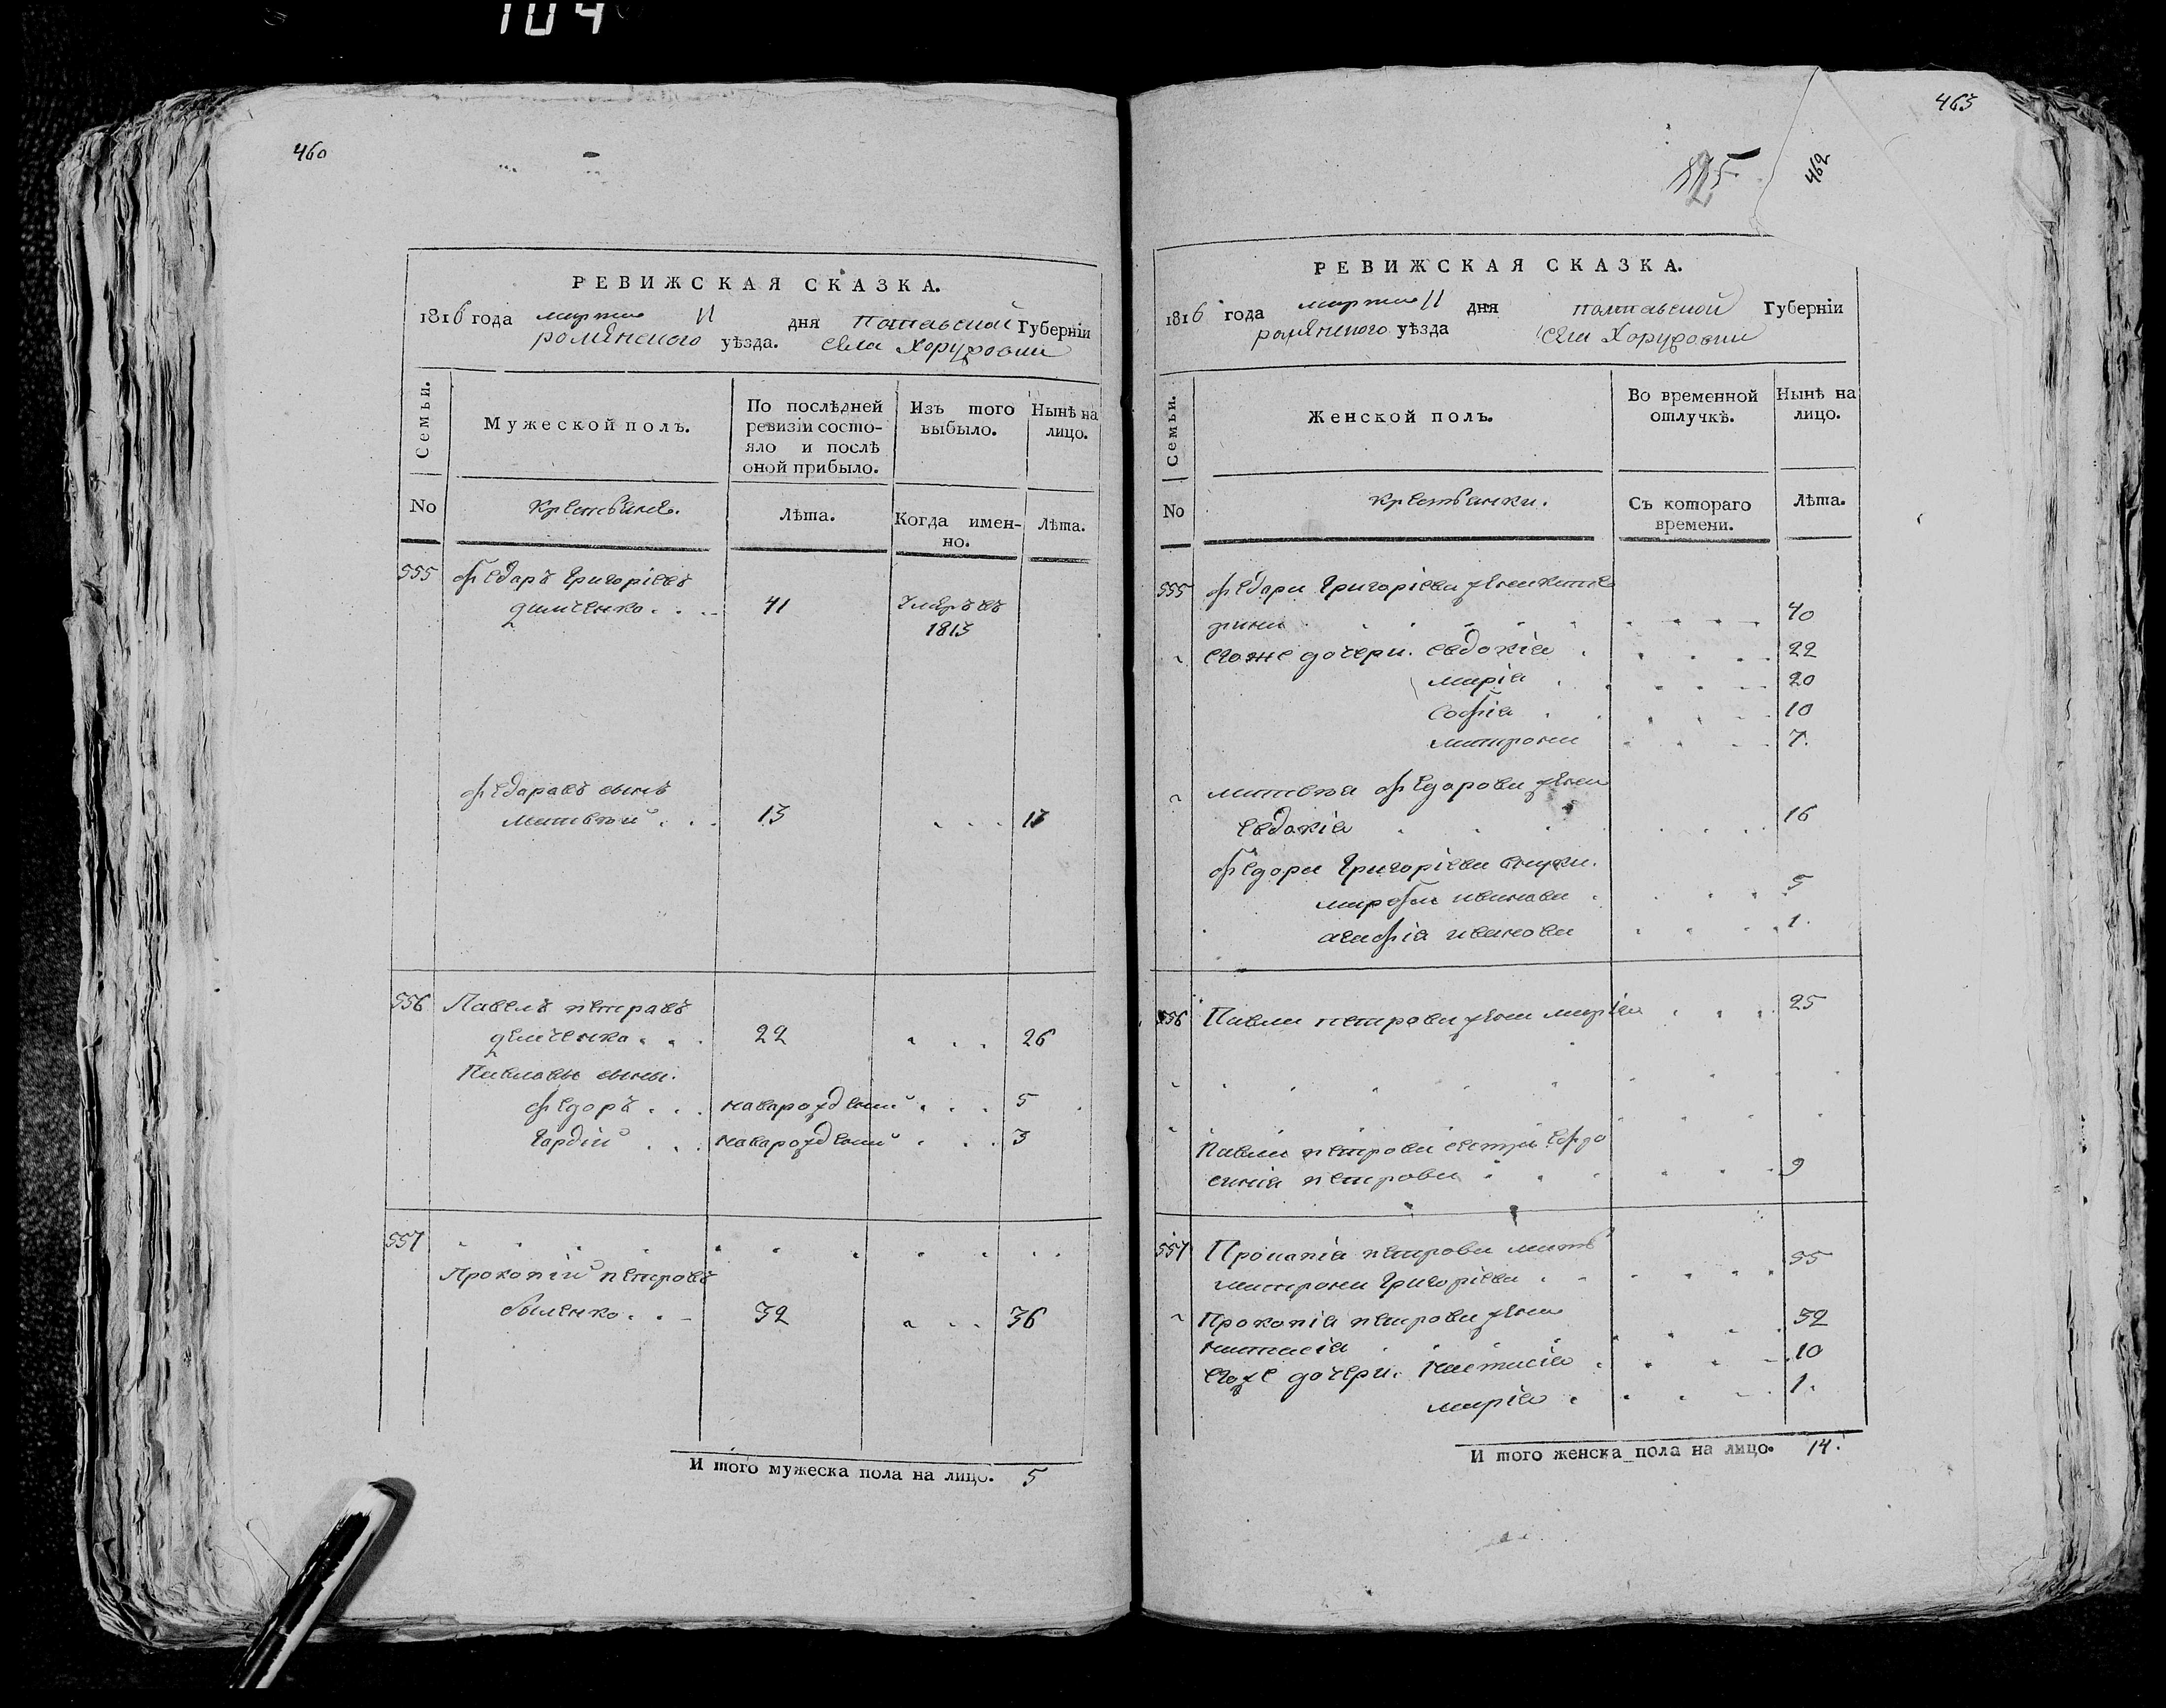 104
460
РЕВИЖСКАЯ СКАЗКА.
1816 года марта 11 дня Полтавской Губернїи
роменского уѣзда. села Хоружовки
Семьи.
Мужеской полъ.
По послѣдней ревизїи состояло и послѣ оной прибыло.
Изъ того выбыло.
Нынѣ на лицо.
No
Крестьяне.
Лѣта.
Когда именно.
Лѣта.
555 Федаръ Григорїевъ
41 Умеръ въ
1813
Федаравъ сынъ
Матвей . . . 13 . . . 17
556 Павелъ петравъ
демченко . . . 22 . . . 26
Павлавы сыны.
Федоръ . . . наварожденный . . . 5
Гардїй . . . наварожденный . . . 3
557
Прокопїй петровъ
32 . . . 36
И того мужеска пола на лицо. 5
463
462
РЕВИЖСКАЯ СКАЗКА.
1816 года марта 11 дня полтавской Губернїи
роменского уѣзда села Хоружовки
Семьи.
Женской полъ.
Во временной отлучкѣ.
Нынѣ на лицо.
No
крестьянки.
Съ котораго времени.
Лѣта.
555 Федара Григорїева жена кате
рина 40
егоже дочери. евдокїя 22
марїя 20
софїя 10
матрона 7.
матвея Федорова жена
евдокїя 16
Федора Григорїева внуки.
марфа иванова 5
агафїя иванова 1.
556 Павла петрова жена марїя 25
Павла петрова сестра ефро
синїя петрова 9
557 Прокопїя петрова мать
матрона Григорїева 55
Прокопїя петрова жена
настасїя 32
егоже дочери. настасїя 10
марїя 1.
И того женска пола на лицо. 14.